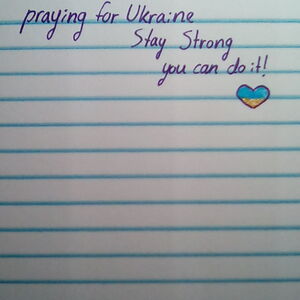 praying for Ukraine
Stay Strong
you can do it!